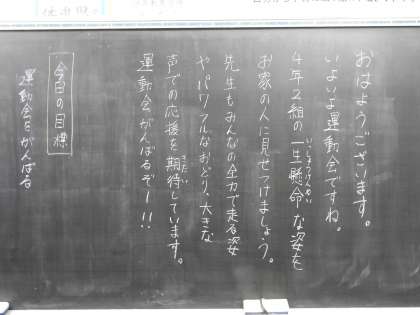 おはようございます。
いよいよ運動会ですね。
4年2組の一生懸命な姿を
お家の人に見せつけましょう。
先生もみんなの全力で走る姿
やパワフルなおどり、大きな
声での応援を期待しています。
運動会がんばるぞー!!
今日の目標
運動会をがんばる